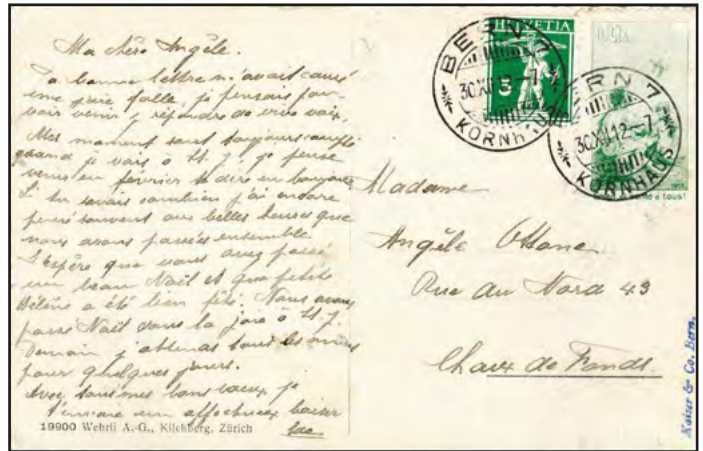 Ma chère Angèle.
Ta bonne lettre m'avait causé
une joie folle, je pensais pou-
vais venir y répondre de vive voix.
Mes moment sont toujours
quand je vais à St. J. je pense
venir en février te dire un bonjour
Si tu savais combien j'ai encore
pensé souvent aux belles heures que
nous avons passées ensemble.
J'espère que vous avez passé
un beau Noël et que petite
Hélène a été bien fêté. Nous avons
passé Noël dans la joie à St. J.
Demain j'attends tous les
pour quelques jours.
Avec tous mes bons vœux je
t'envoie un affectueux baiser
19900 Wehrli A.-G., Kilchberg, Zürich
HELVETIA
5
BERN 7
30.XII.12.-7
KORNHAUS
BERN 7
30.XII.12.-7
KORNHAUS
à tous!
Madame
Angèle
Rue du Nord 49
Chaux de Fonds.
Kaiser & Co. Bern.